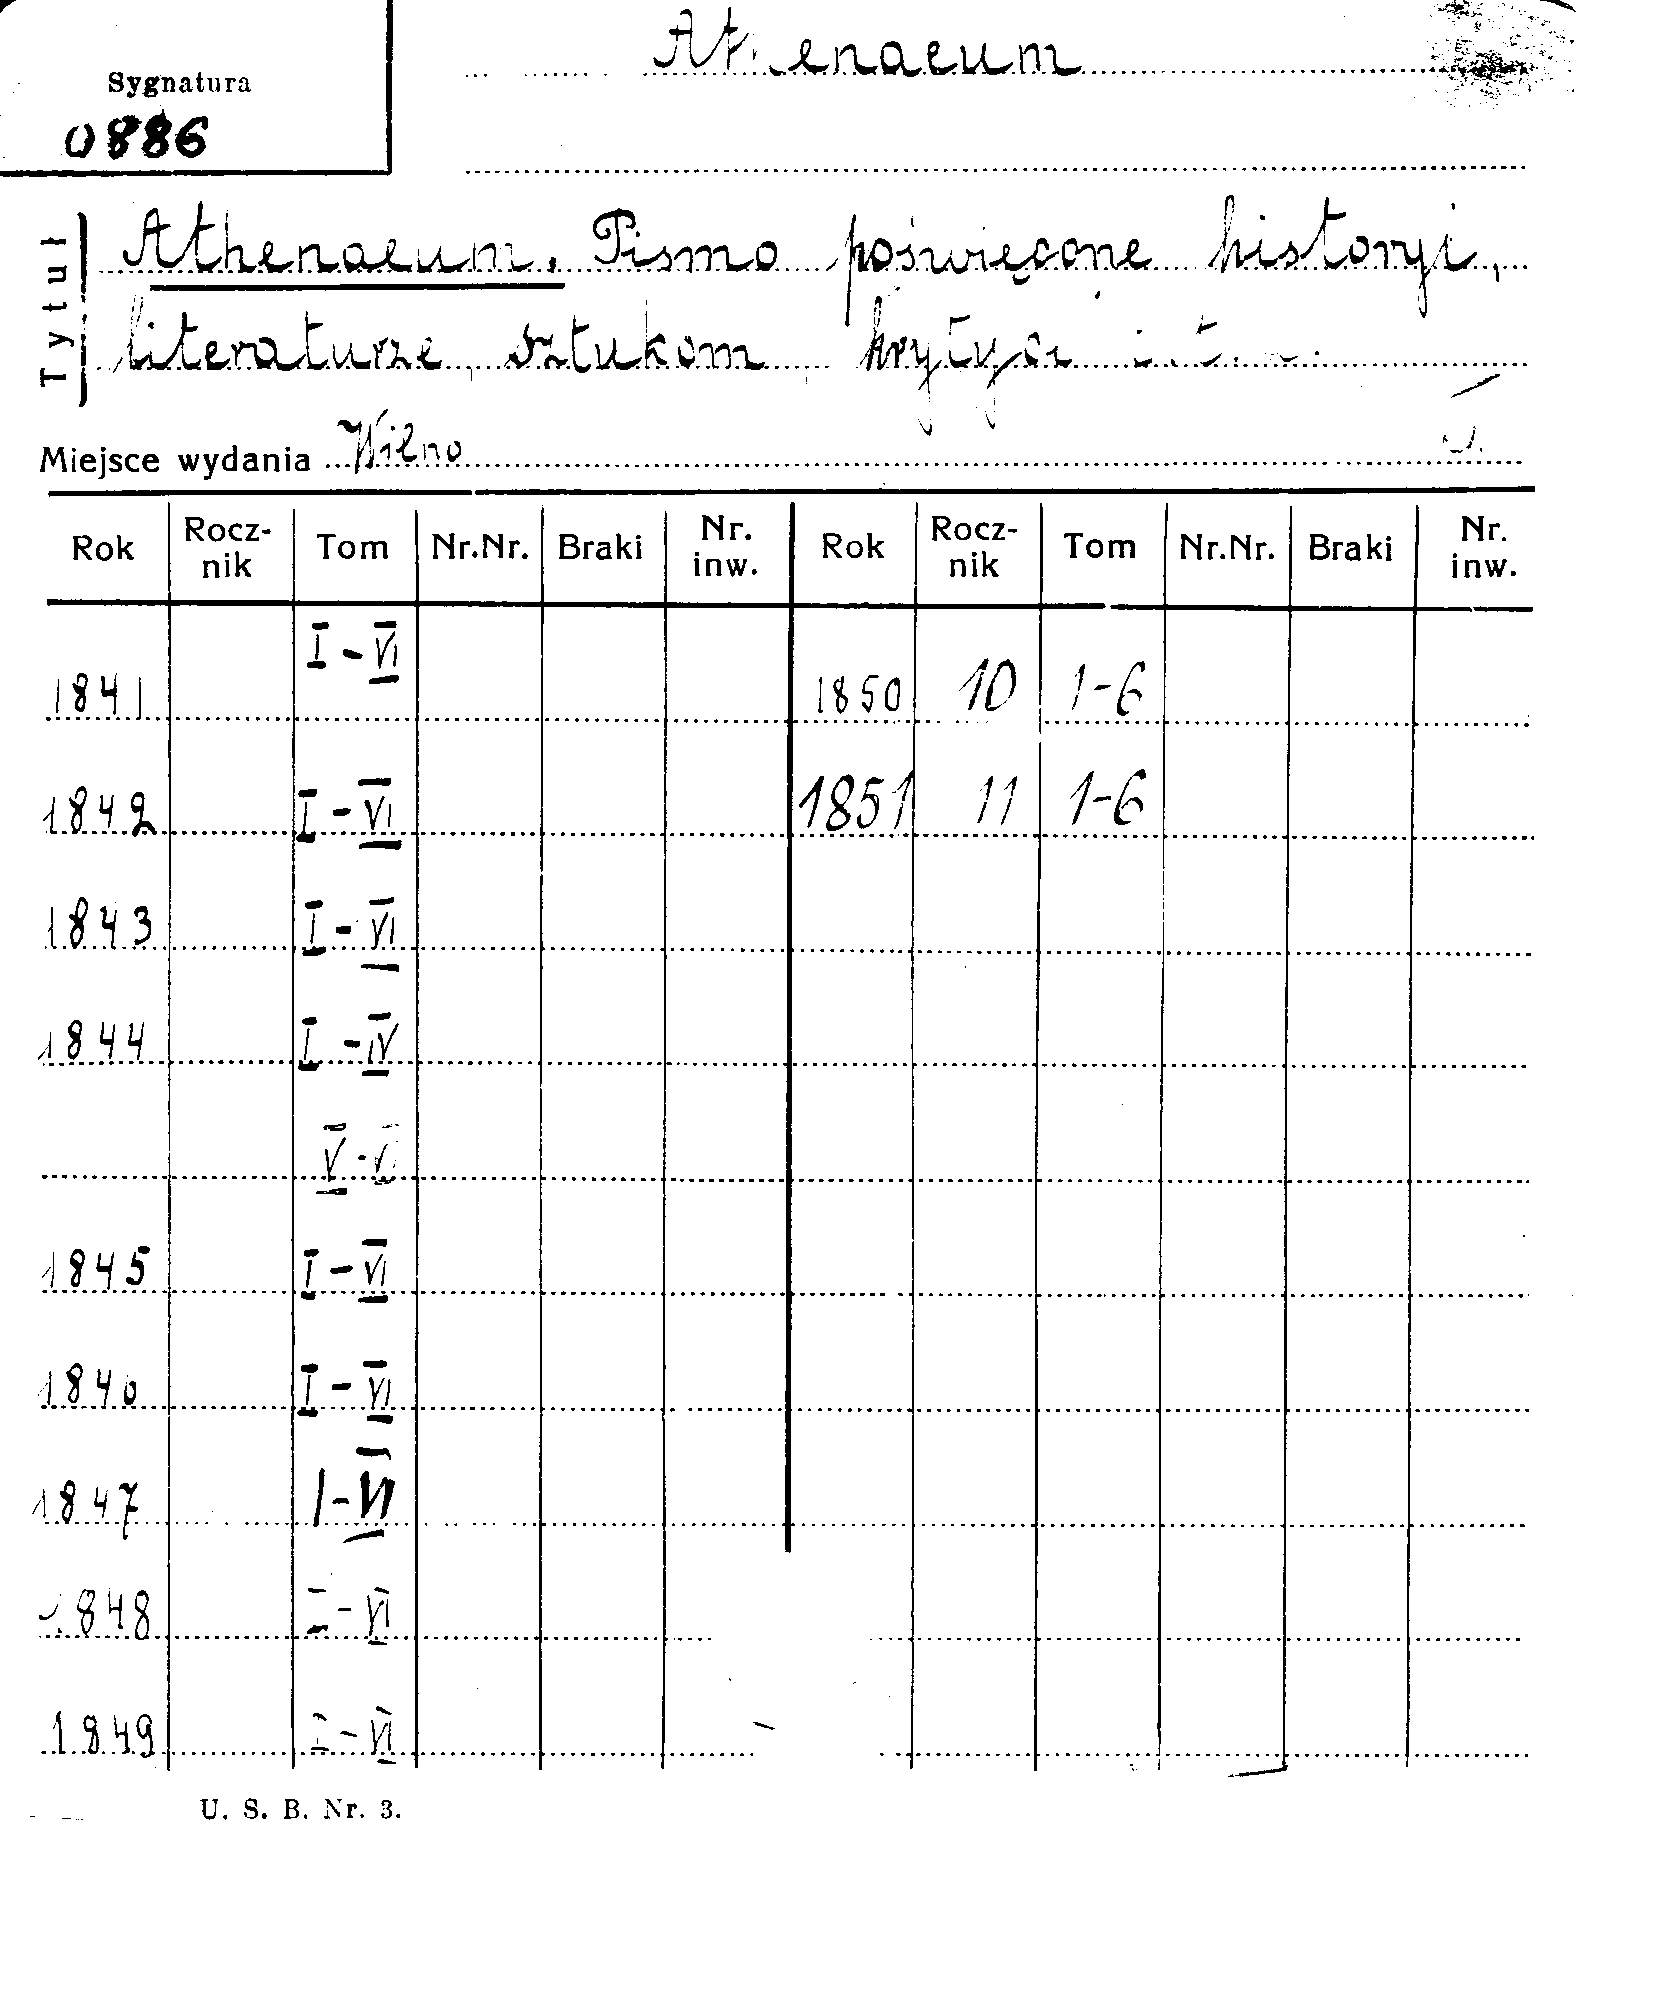 Athenaeum
Sygnatura
0886
Tytuł
Athenaeum. Pismo poświęcone historyi,
literaturze, sztukom, krytyce i t.
Miejsce wydania Wilno
Rok Rocz-nik Tom Nr.Nr. Braki Nr. inw. Rok Rocz-nik Tom Nr.Nr. Braki Nr. inw.
1841 I-VI 1850 10 1-6
1842 I-VI 1851 11 1-6
1843 I-VI
1844 I-IV
V-VI
1845 I-VI
1846 I-VI
1847 I-VI
1848 I-VI
1849 I-VI
U. S. B. Nr. 3.